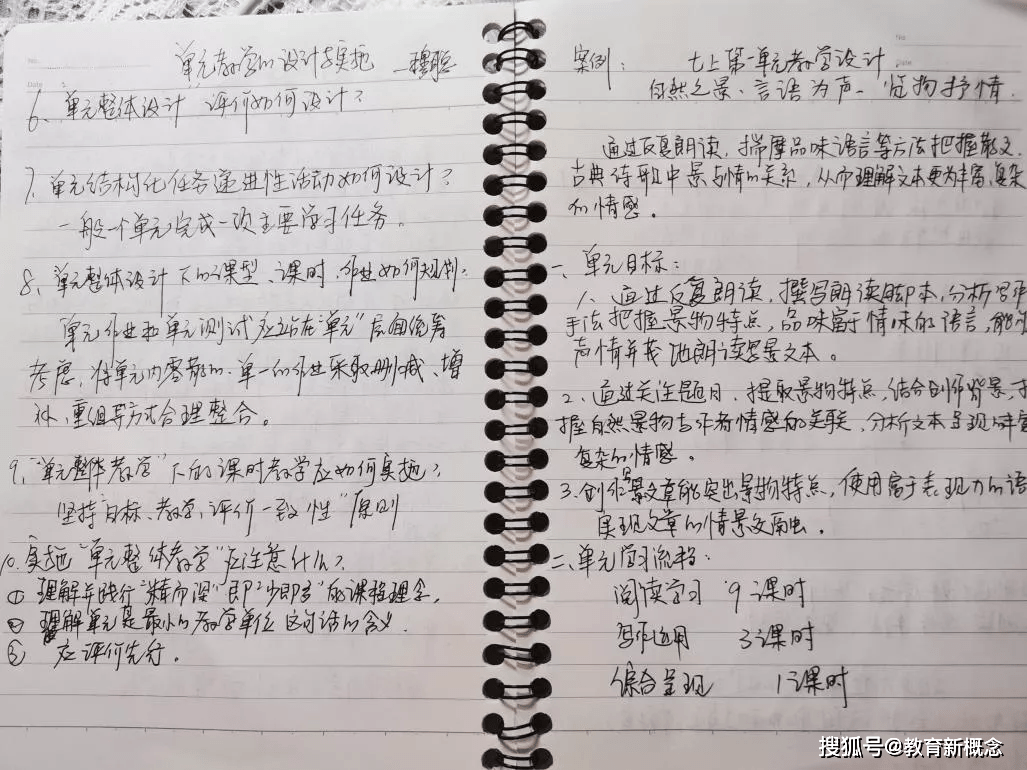 单元教学的设计与实施 —穆聪
6、"单元整体设计"评价如何设计？
7、单元结构化任务递进性活动如何设计？
一般一个单元完成一项主要学习任务。
8、单元整体设计下的课型、课时、作业如何规划？
单元作业和单元测试应站在"单元"层面统筹
考虑，将单元内零散的、单一的作业采取删减、增
补、重组等方式合理整合。
9、"单元整体教学"下的课时教学应如何实施？
坚持"目标、教学、评价一致性"原则
10、实施"单元整体教学"应注意什么？
① 理解并践行"精而深"即"少即多"的课程理念。
② 理解单元是最小的教学单位这句话的含义.
③ 应评价先行。
案例： 七上第一单元教学设计
自然之景、言语为声、览物抒情
通过反复朗读，揣摩品味语言等方法把握散文、
古典诗歌中景与情的关系，从而理解文本更为丰富、复杂
的情感。
一、单元目标：
1、通过反复朗读，撰写朗读脚本，分析写作
手法把握景物特点，品味富于情味的语言，能
声情并茂地朗读写景文本。
2、通过关注题目、提取景物特点，结合创作背景，
握自然景物与作者情感的关联，分析文本呈现的丰富
复杂的情感。
3、创作写景文章能突出景物特点，使用富于表现力的语
实现文章的情景交融。
二、单元学习流程：
阅读学习 9课时
写作运用 3课时
综合呈现 1课时
No.
Date
No.
Date
搜狐号@教育新概念